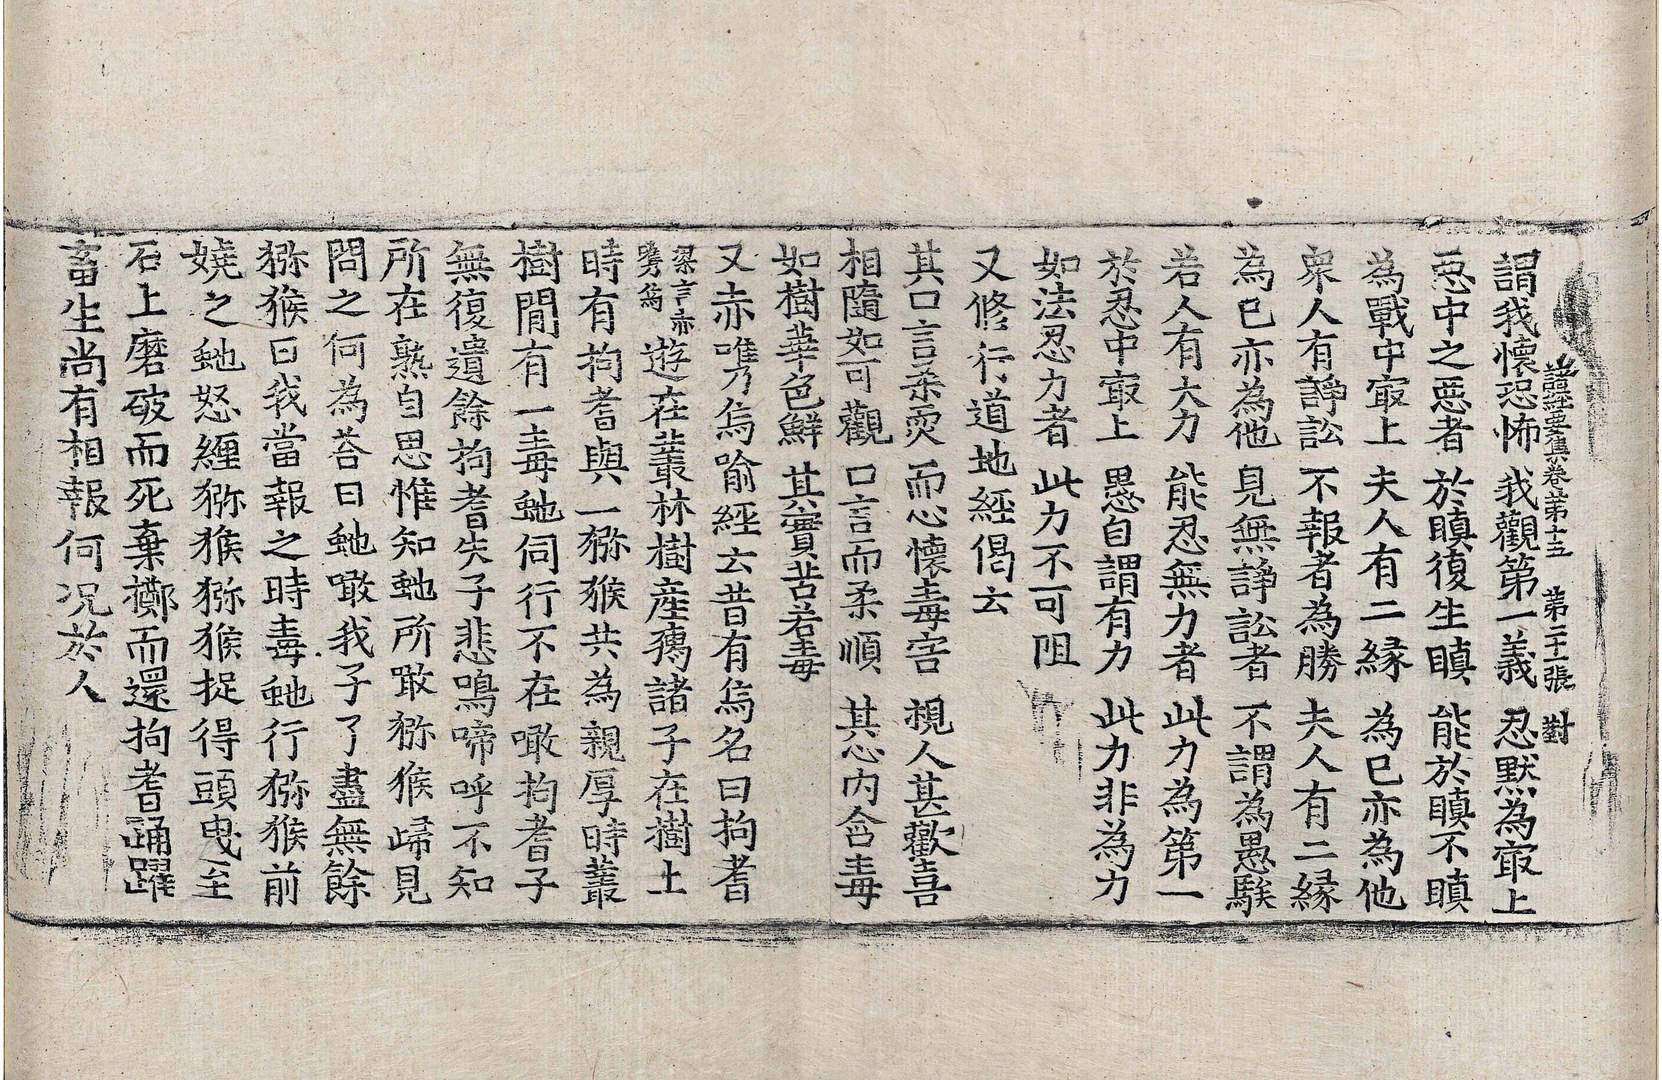 諸經要集卷第十五　第二十一張　對
謂我懷恐怖　我觀第一義　忍默為㝡上
惡中之惡者　於瞋復生瞋　能於瞋不瞋
為戰中㝡上　夫人有二緣　為己亦為他
衆人有諍訟　不報者為勝　夫人有二緣
為己亦為他　見無諍訟者　不謂為愚騃
若人有大力　能忍無力者　此力為第一
於忍中㝡上　愚自謂有力　此力非為力
如法忍力者　此力不可阻
又修行道地經偈云
其口言柔耎　而心懷毒害　視人甚歡喜
相隨如可觀　口言而柔順　其心內含毒
如樹華色鮮　其實苦若毒
又赤𭉨烏喻經云昔有烏名曰拘耆
梁言亦
鴈烏
遊在叢林樹產鷇諸子在樹上
時有拘耆與一猕猴共為親厚時叢
樹間有一毒虵伺行不在噉拘耆子
無復遺餘拘耆失子悲鳴啼呼不知
所在熟自思惟知虵所噉猕猴歸見
問之何為荅曰虵噉我子了盡無餘
猕猴曰我當報之時毒虵行猕猴前
嬈之虵怒纏猕猴猕猴捉得頭曳至
石上磨破而死棄擲而還拘耆踊躍
畜生尚有相報何况於人